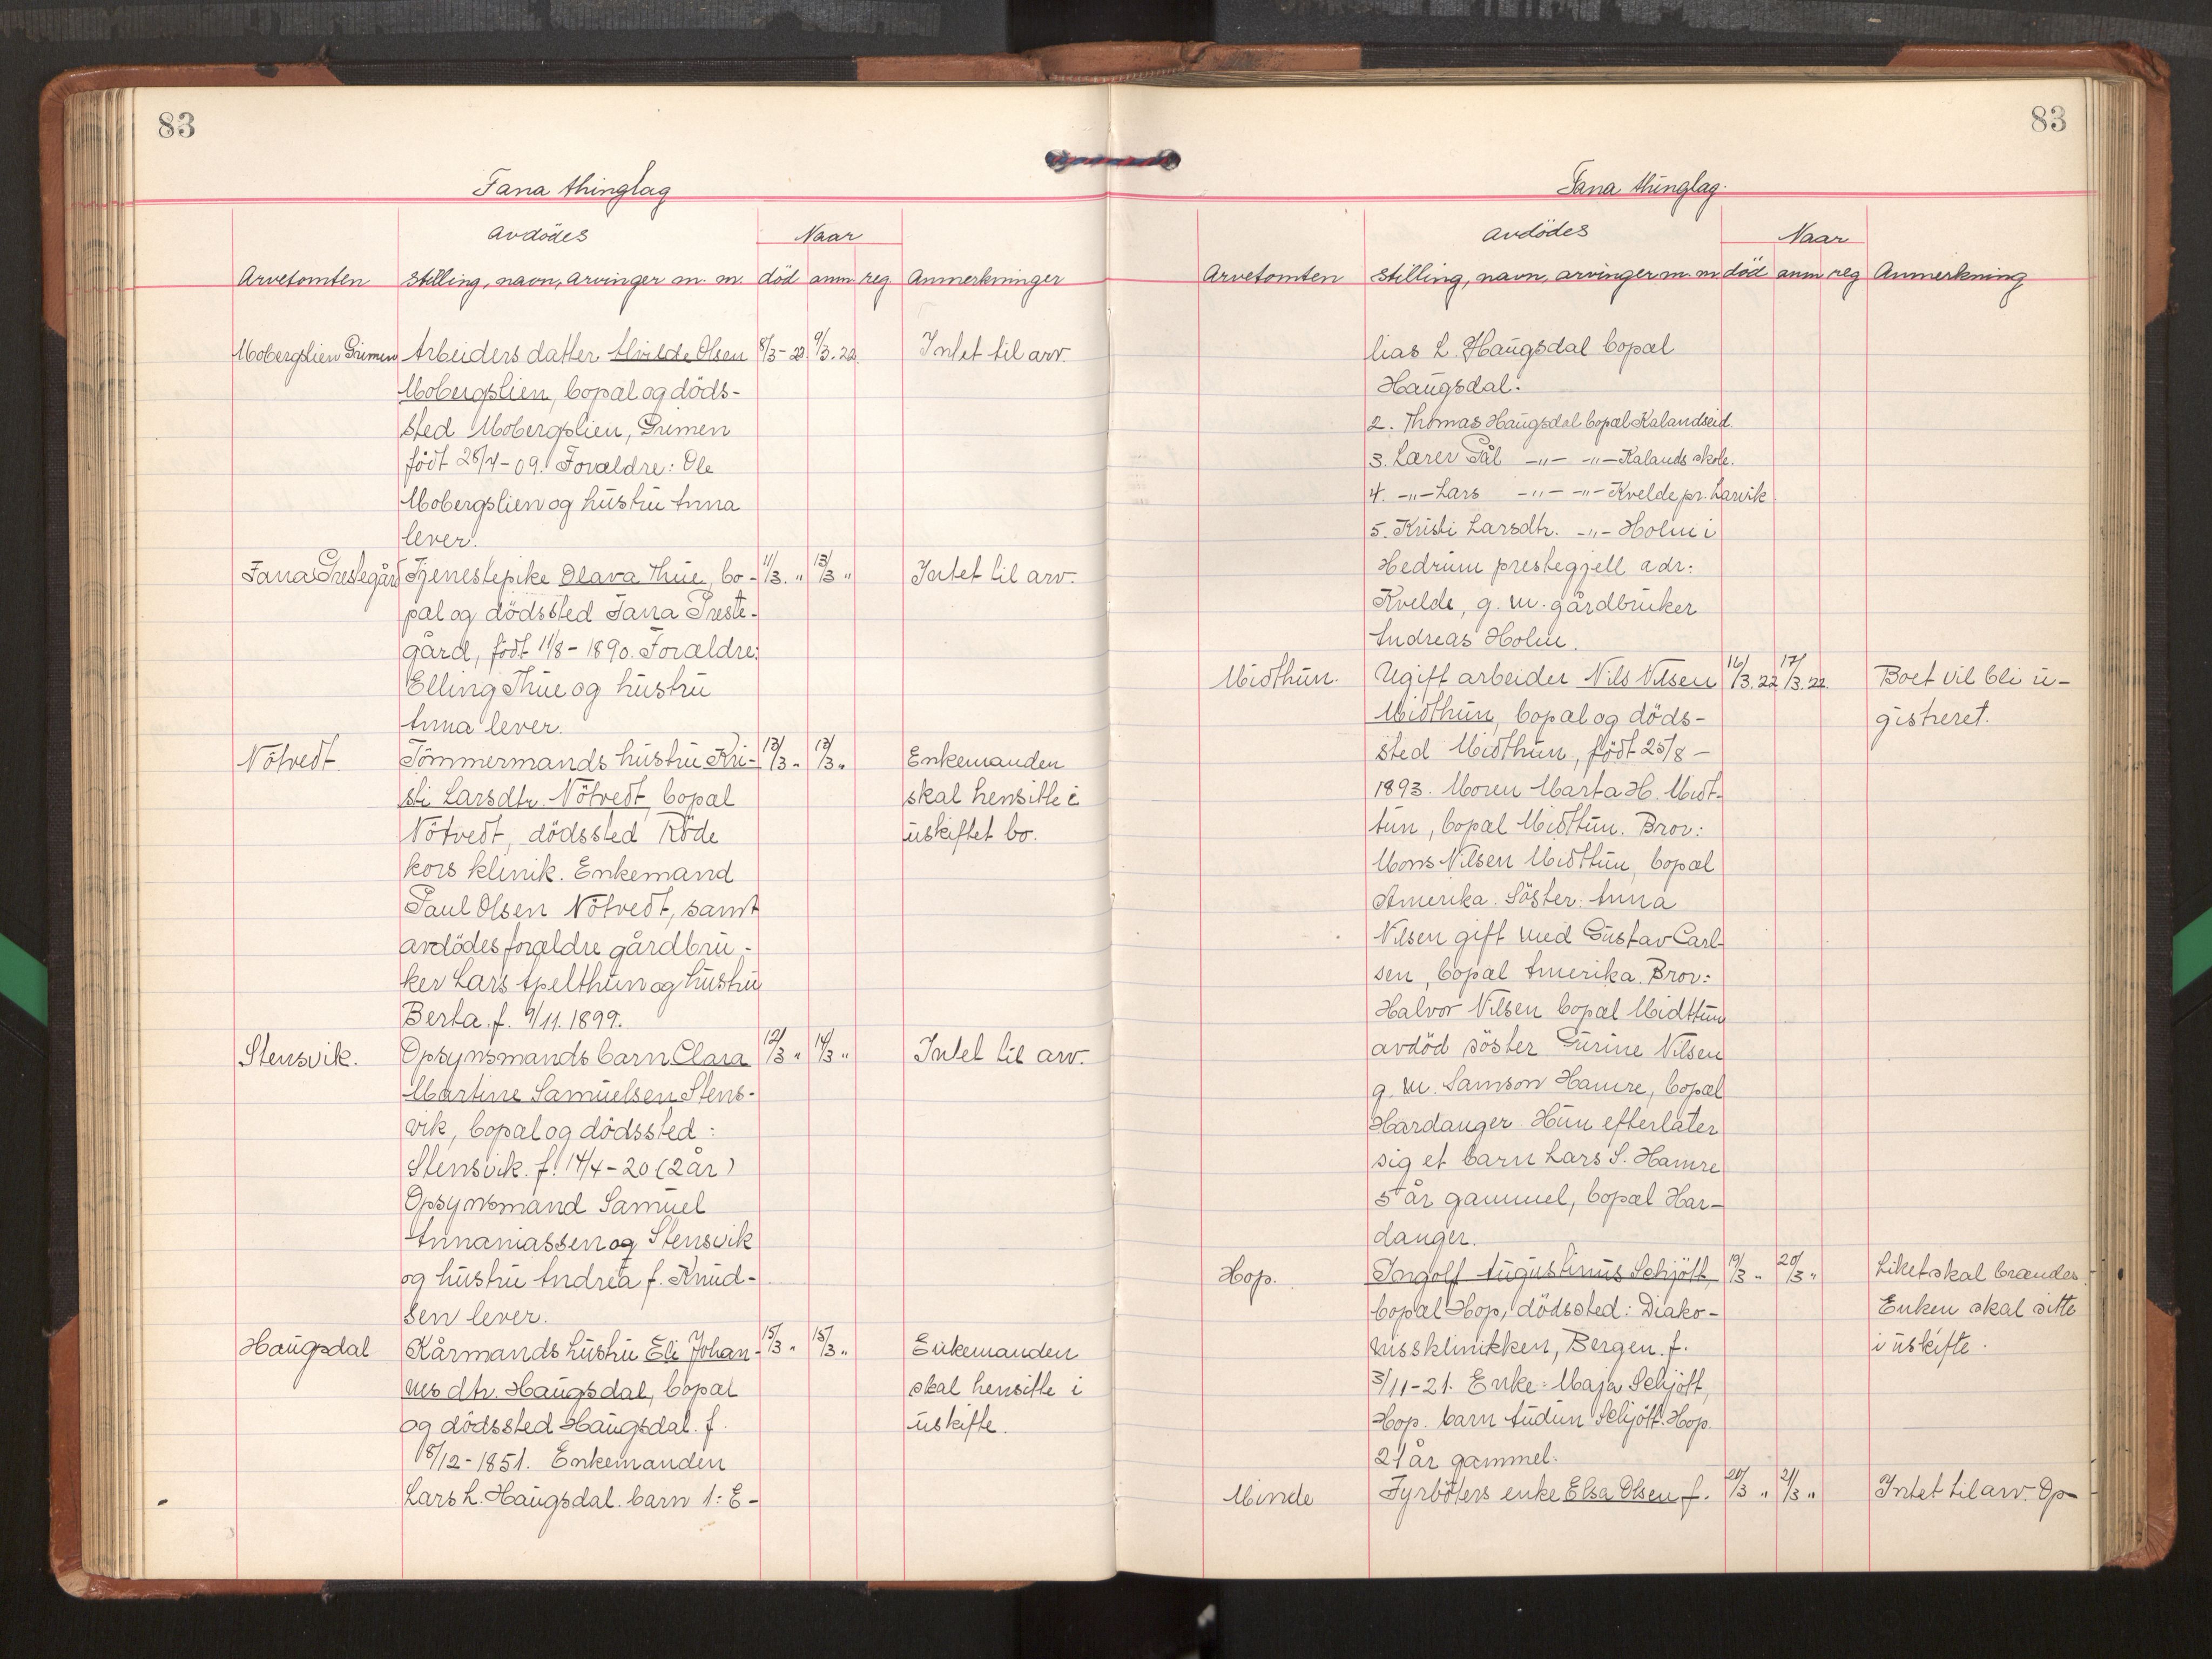 83
Fana thinglag
Avdödes
Naar
Arvetomten Stilling, navn, arvinger m. m. död anm. reg. Anmerkninger
Mobergslien Grimen Arbeiders datter Alvilde Olsen 8/3-22 9/3.22. Intet til arv.
Mobergslien, bopal og döds-
sted Mobergslien, Grimen
födt 28/4-09. Forældre: Ole
Mobergslien og hustru Anna
lever.
Fana Prestegård Tjenestepike Olava Thue, bo- 11/3. " 13/3 " Intet til arv.
pal og dödssted Fana Preste-
gård, födt 11/8-1890. Forældre:
Elling Thue og hustru
Anna lever.
Nötvedt. Tömmermands hustru Kri- 13/3 " 13/3 " Enkemanden
sti Larsdtr. Nötvedt, bopal skal hensitte i
Nötvedt, dödssted Röde uskiftet bo.
kors klinik. Enkemand
Paul Olsen Nötvedt, samt
avdödes forældre gårdbru-
ker Lars Apelthun og hustru
Berta. f. 9/11.1899.
Stensvik. Opsynsmands barn Clara 12/3 " 14/3 " Intet til arv.
Martine Samuelsen Stens-
vik, bopal og dödssted:
Stensvik. f. 14/4-20 (2 år)
Opsynsmand Samuel
Annaniassen og Stensvik
og hustru Andrea f. Knud-
sen lever.
Haugsdal Kårmands hustru Eli Johan- 15/3 " 15/3 " Enkemanden
nes dtr. Haugsdal, bopal skal hensitte i
og dödssted Haugsdal. f. uskifte.
18/12-1851. Enkemanden
Lars L. Haugsdal. barn 1: E-
83
Fana thinglag.
Avdödes
Naar
Arvetomten Stilling, navn, arvinger m. m död anm reg Anmerkning
lias L. Haugsdal bopal
Haugsdal.
2. Thomas Haugsdal bopal Kalandseid.
3. Lærer Pål -"- -"- Kalands skole.
4. -"- Lars -"- -"- Kvelde pr. Larvik
5. Kristi Larsdtr. -"- Holm i
Hedrum prestegjell adr:
Kvelde, g. m. gårdbruker
Andreas Holm.
Midthun. Ugift arbeider Nils Nilsen 16/3.22 17/3.22. Boet vil bli u-
Midthun, bopal og döds- gistreret.
sted Midthun, födt 25/8-
1893. Moren Marta H. Midt-
tun, bopal Midthun. Bror:
Mons Nilsen Midttun, bopal
Amerika. Söster: Anna
Nilsen gift med Gustav Carl-
sen, bopal Amerika. Bror:
Halvor Nilsen bopal Midttun
avdöd söster Gurine Nilsen
g. m. Samson Hamre, bopal
Hardanger. Hun efterlater
sig et barn Lars S. Hamre
5 år gammel, bopal Har-
danger.
Hop. Ingolf Augustinus Schjött, 19/3 " 20/3 " Liket skal brændes.
bopal Hop, dödssted: Diako- Enken skal sitte
nissklinikken, Bergen. f. i uskifte.
3/11-21. Enke: Maja Schjött,
Hop. barn Audun Schjött. Hop.
21 år gammel.
Minde Fyrböters enke Elsa Olsen f. 20/3 " 21/3 " Intet til arv. Op-